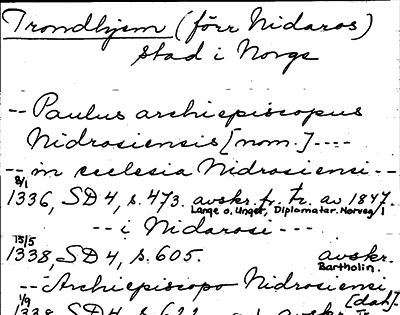 Trondhjem (förr Nidaros)
stad i Norge
-- Paulus archiepiscopus
Nidrosiensis [nom.] ----
-- in ecclesia Nidrosiensi --
8/1
1336, SD 4, s. 473. avskr. fr. tr. av 1847.
Lange o. Unger, Diplomatar. Norveg 1
-- i Nidarosi ---
15/5
1338, SD 4, s. 605. avskr.
Bartholin.
-- Archiepiscopo Nidrosiensi
1/9 [dat.]
1338 SD 4 s. 622 avskr. Tr